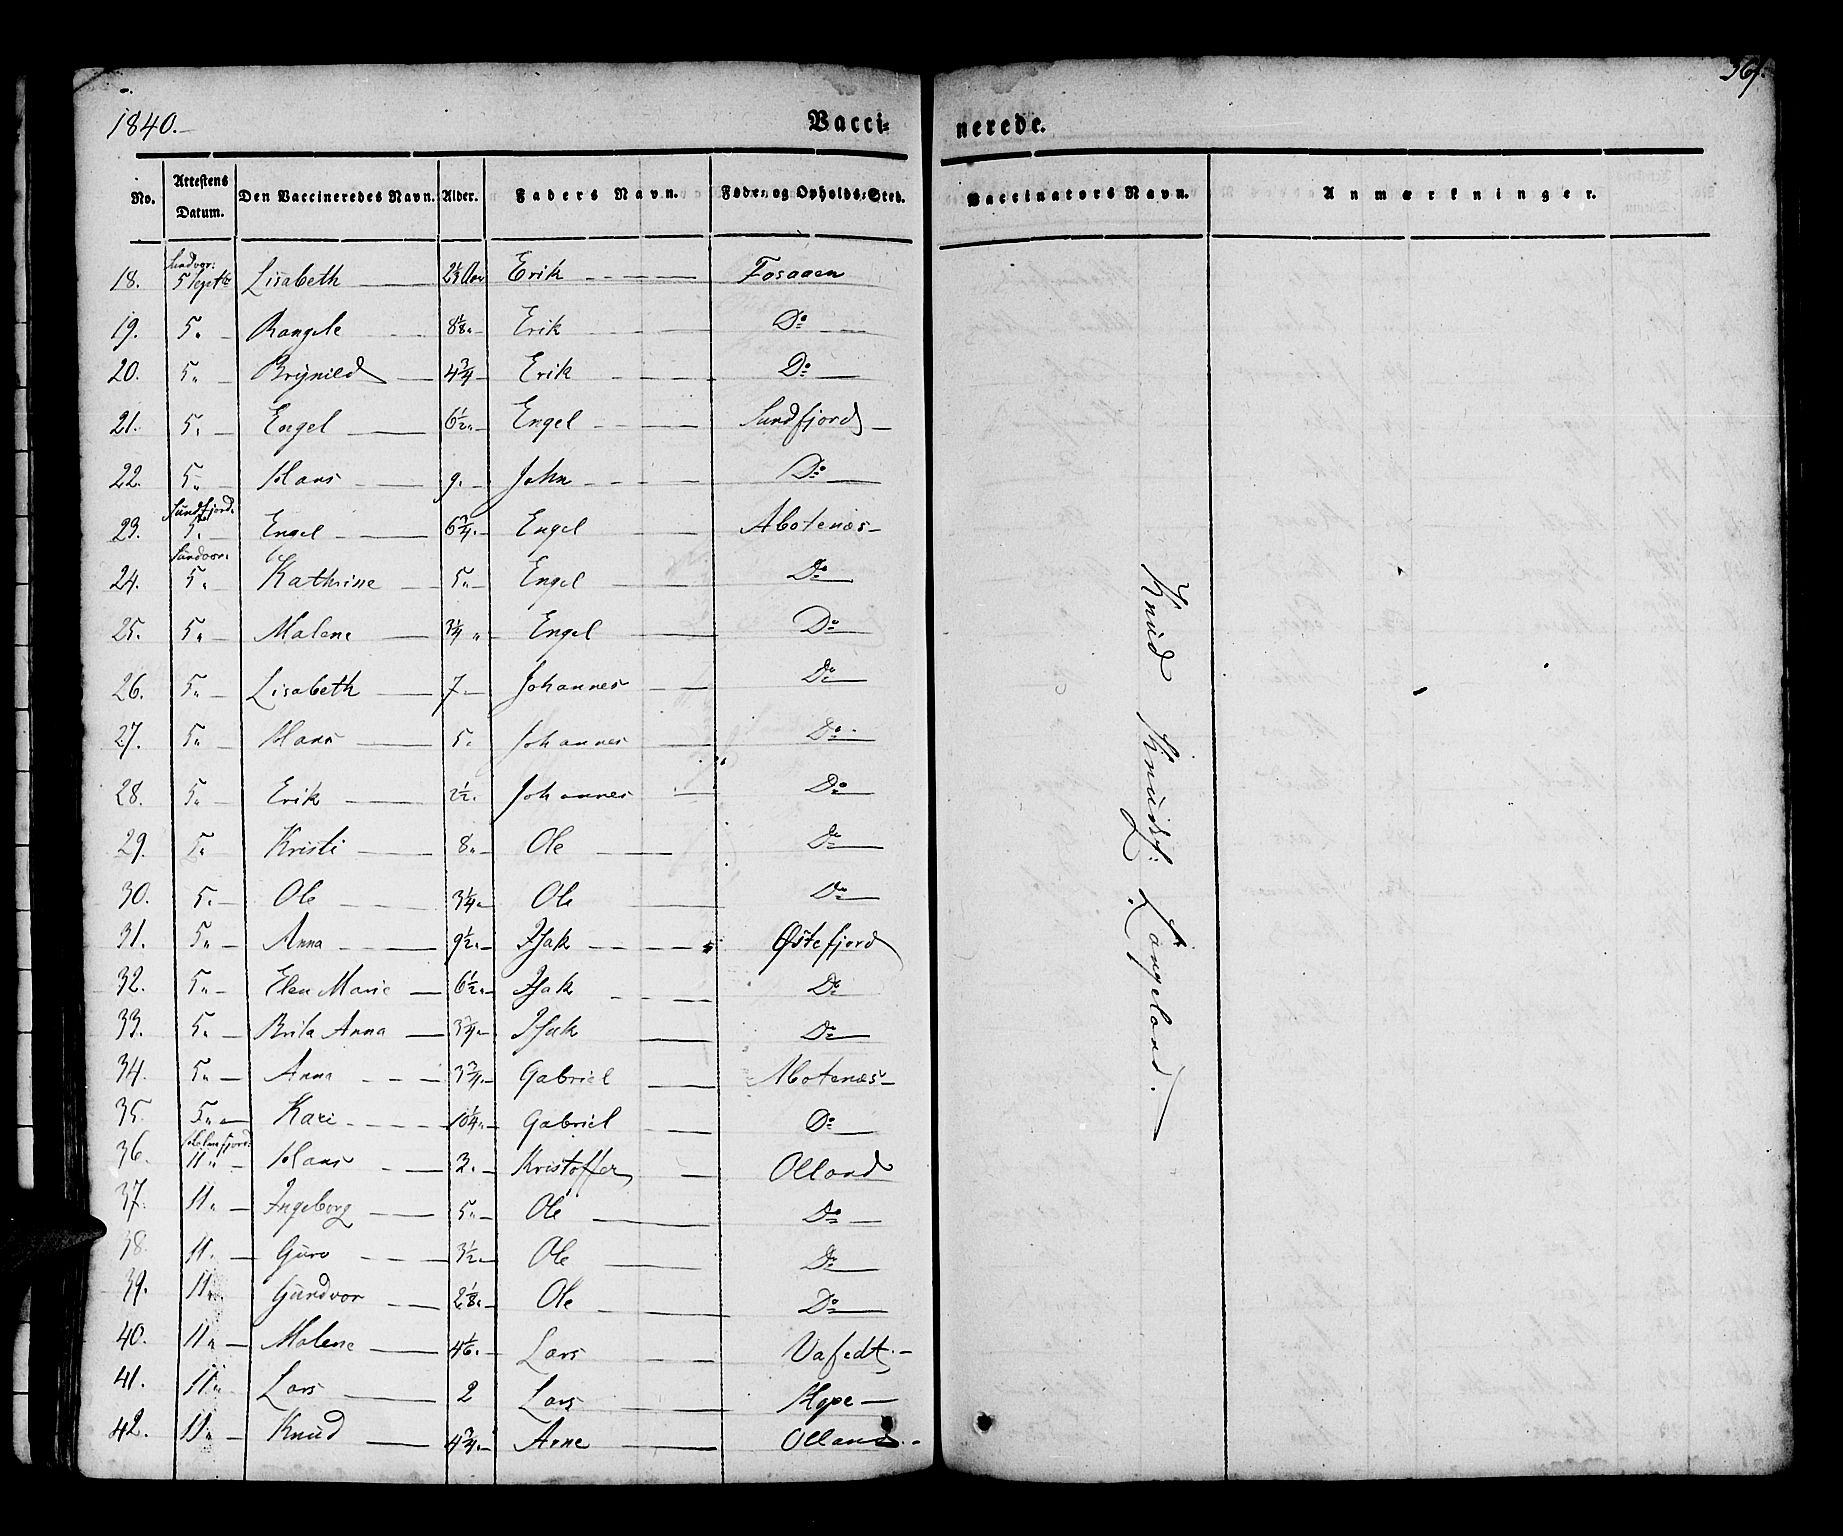 1840.
Vaccinerede.
No. Attestens Datum. Den Vaccineredes Navn. Alder. Faders Navn. Føde- og Opholds-Sted. Vaccinators Navn. Anmærkninger.
18. 5 Septr Lisabeth Erik Fosaaen
19. 5. Rangele 8 1/8. Erik Do
20. 5. Brynild 4 3/4 Erik Do
21. 5. Engel 6 1/2. Engel Sundfjord
22. 5. Hans 9. John Do
Sundfjord.
23. 5. Engel 6 3/4. Engel Abotenæs
24. 5. Kathrine 5. Engel Do
25. 5. Malene 3 1/4 Engel Do
26. 5. Lisabeth 7 Johannes Do
27. 5. Hans 5. Johannes Do
28. 5. Erik 2 1/2. Johannes Do
29. 5. Kristi 8. Ole Do
30. 5. Ole 3 1/4. Ole Do
31. 5. Anna 9 1/2. Isak Østefjord
32. 5. Elen Marie 6 1/2. Isak Do
33. 5. Brita Anna 3 3/4. Isak Do
34. 5. Anna 3 3/4. Gabriel Abotenæs
35. 5. Kari 10 1/4. Gabriel Do
36. 11. Hans 3. Kristoffer Olland
37. 11. Ingeborg 5. Ole Do
38. 11. Guro 3 1/2. Ole Do
39. 11. Gundvor 2 1/8. Ole Do
40. 11. Malene 4 1/6. Lars
41. 11. Lars 2 Lars Hope
42. 11. Knud 4 3/4. Arne Olland
Knud Knuds: Langeland.